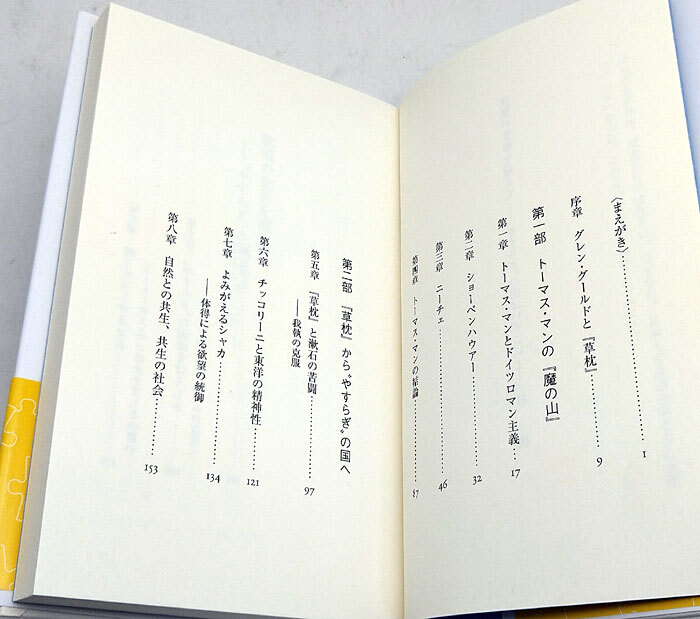 〈まえがき〉……………………1
序章　グレン・グールドと『草枕』………9
第一部　トーマス・マンの『魔の山』
第一章　トーマス・マンとドイツロマン主義……17
第二章　ショーペンハウアー……………32
第三章　ニーチェ……………………46
第四章　トーマス・マンの結論……………87
第二部　『草枕』から〝やすらぎ〟の国へ
第五章　『草枕』と漱石の苦闘……………97
――我執の克服
第六章　チッコリーニと東洋の精神性………121
第七章　よみがえるシャカ……………134
――体得による欲望の統御
第八章　自然との共生、共生の社会………153